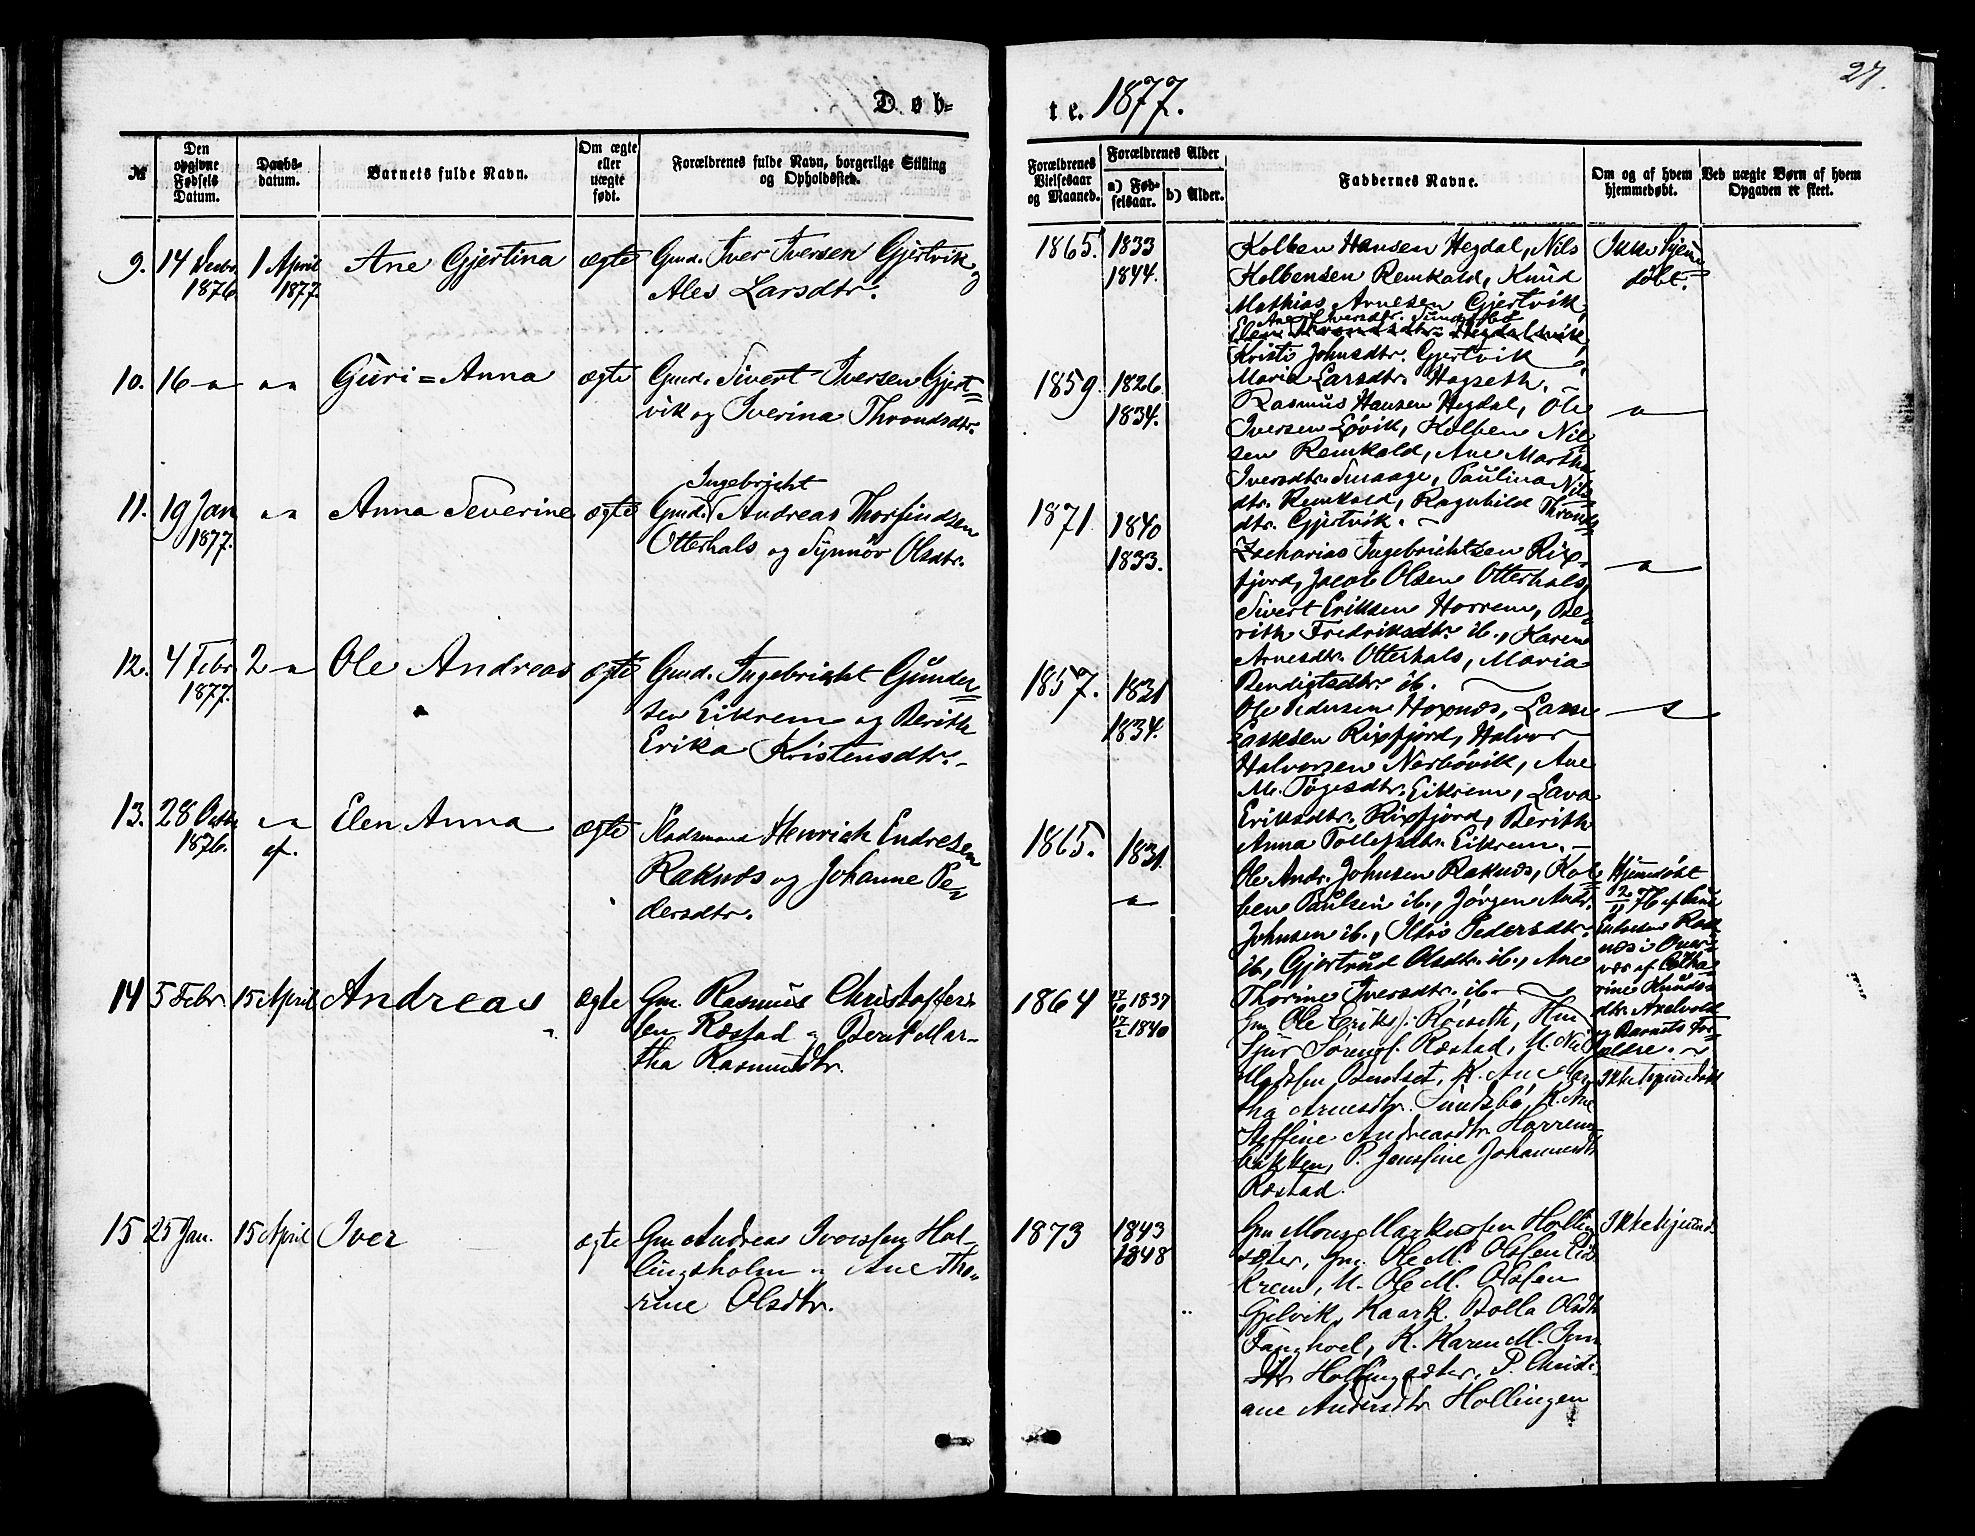 27.
Døb-
te. 1877.
№
Den opgivne Fødsels Datum.
Daabs-datum.
Barnets fulde Navn.
Om ægte eller uægte født.
Forældrenes fulde Navn, borgerlige Stilling og Opholdssted.
Forældrenes Vielsesaar og Maaned.
Forældrenes Alder
a) Fød-selsaar.
b) Alder.
Faddernes Navne.
Om og af hvem hjemmedøbt.
Ved uægte Børn af hvem Opgaven er skeet.
9. 14 Decbr 1876 1 April 1877. Ane Gjertina ægte
Gmd. Iver Iversen Gjertvik og
Ales Larsdtr.
1865. 1833
1844.
Kolben Hansen Hegdal, Nils
Kolbensen Remkald, Knud
Mathias Arnesen Gjertvik,
Kristi Johnsdtr. Gjertvik
Maria Larsdtr. Hagseth.
Ikke hjem
døbt.
10. 16 — " " " Guri = Anna ægte
Gmd. Sivert Iversen Gjert=
vik og Iverina Throndsdtr.
1859. 1826
1834.
Rasmus Hansen Hegdal, Ole
Iversen Løvik, Kolben Nil
sen Remkald, Ane Martha
Iversdtr. Smaage, Paulina Nils
dtr. Remkald, Ragnhild Thronds
dtr. Gjertvik.
— " —
11. 19 Jan 1877. " " Anna Severine ægte
Ingebricht
Gmd. Andreas Thorfindsen
Otterhals og Synnøv Olsdtr.
1871 1840
1833.
Zacharias Ingebrichtsen Rix
fjord, Jacob Olsen Otterhals,
Sivert Eriksen Horrem, Be
rith Fredriksdtr. ib., Karen
Arnesdtr. Otterhals, Maria
Bendigtsdtr. ib.
— " —
12. 4 Febr 1877. 2 — " Ole Andreas ægte
Gmd. Ingebricht Gunder=
sen Eikrem og Berith
Erika Kristensdtr.
1857. 1831
1834.
Ole Pedersen Hoxnæs, Lasse
Lassesen Rixfjord, Halvor
Halvorsen Nerbøvik, Ane
M. Tøgesdtr. Eikrem, Lava
Eriksdtr. Rixfjord, Berith
Anna Tollefsdtr. Eikrem.
— " —
13. 28 Octbr 1876. " " ef. Elen Anna ægte
Pladsmand Henrich Endresen
Raknæs og Johanne Pe=
dersdtr.
1865. 1831.
— " —
Ole Andr. Johnsen Raknæs, Kol=
ben Paulsen ib., Jørgen Andr.
Johnsen ib., Pedersdtr.
ib., Gjertrud Olsdtr. ib., Ane
Thorine Iversdtr. ib.
Hjemdøbt
2/11 76 af
Rak
næs i Over
vær af
rine Knuds
dtr. Axelvold
og Barnets For=
ældre.
14 5 Febr. 15 April Andreas ægte
Gm. Rasmus Christoffer
sen Ræstad " Beret Mar-
tha Rasmusdtr.
1864 17/10 1837
17/2 1840
Gm. Ole Eriks. Røiseth,
Sjur Sørens. Ræstad, U. Nils
K. Ane
tha Arnesdtr. Sundsbø, K. Ane
Steffine Andreasdtr. Harrem
bakken, P. Jonsfine Johannesdtr
Ræstad.
Ikke hjemdøbt
15 25 Jan. 15 April Iver ægte
Gm Andreas Iversen Hol-
lingsholm " Ane Tho-
rine Olsdtr.
1873 1843
1848
Gm Mons Markussen Hollin
sæter, Gm. Ole M. Olsen Eid
krem, U. Ole M. Olsen
Gjelvik, Kaark. Bolla Olsdtr
Tanghoel, K. Karen M. Jon
dtr Hollingsæter, P. Christi
ane Andersdtr Hollingen
Ikke hjemd.